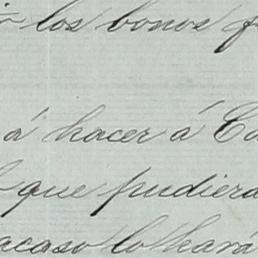 los bonos
á hacer á
que pudiera
acaso lo hará